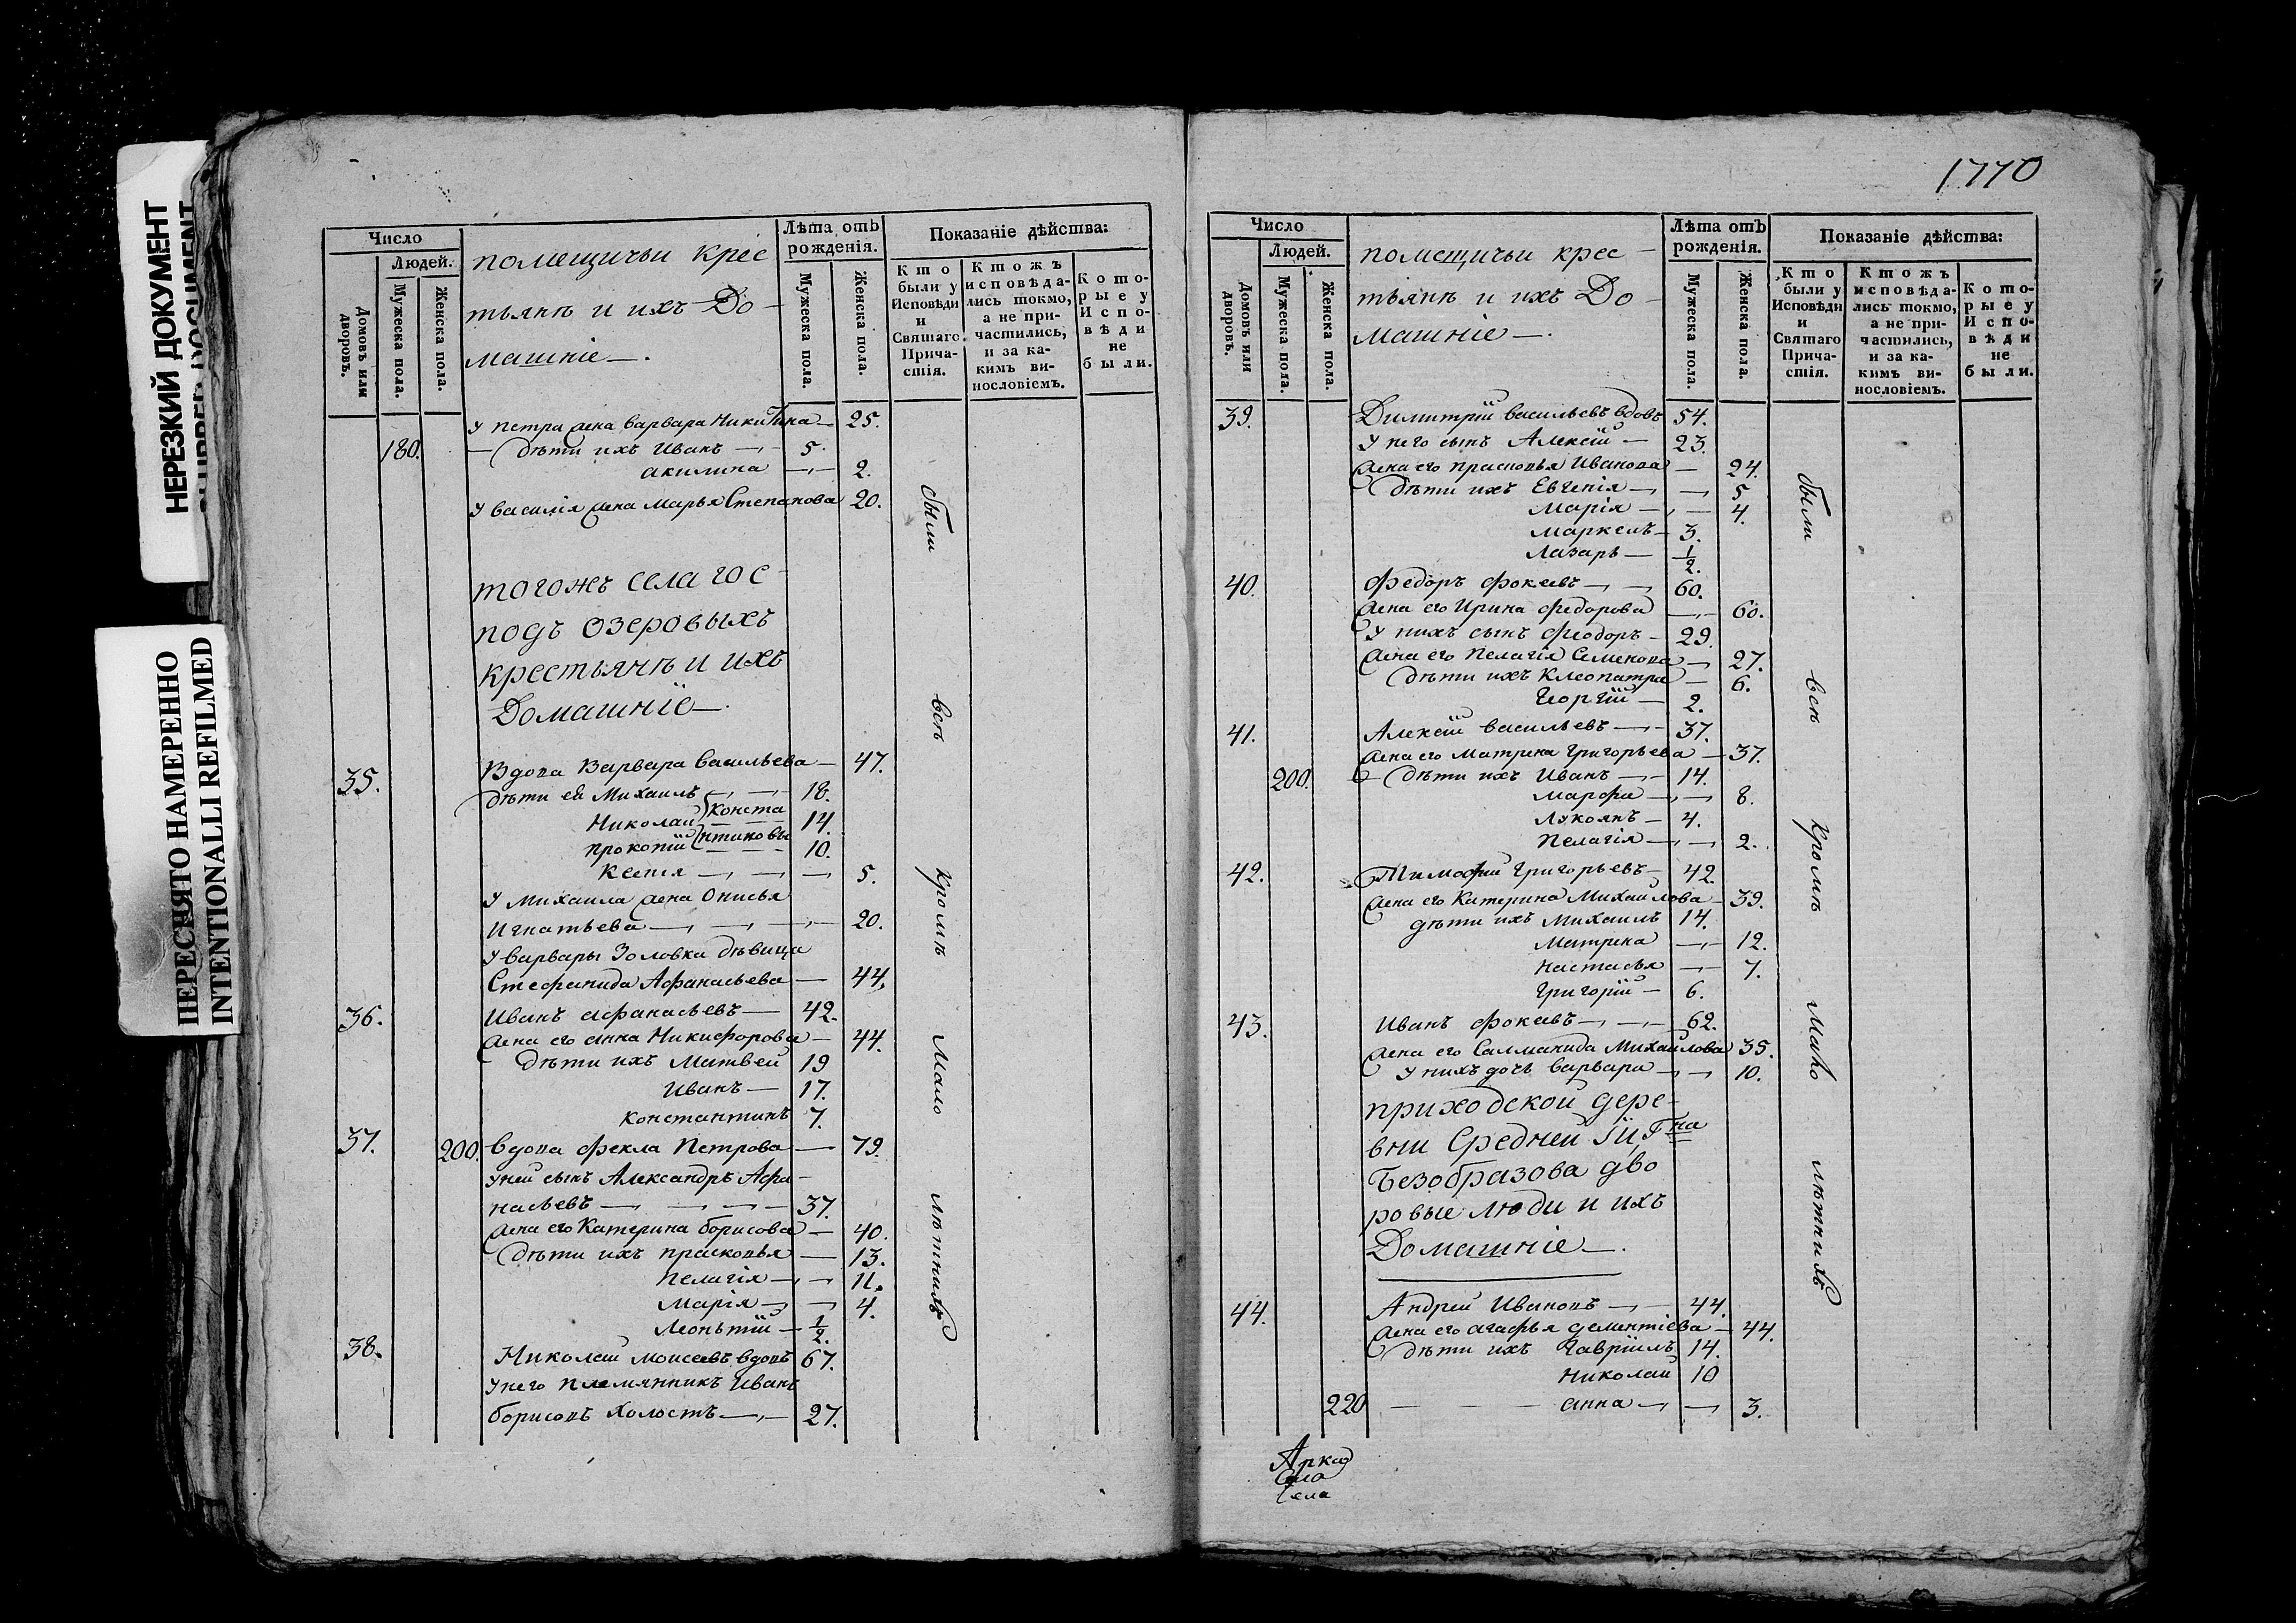 НЕРЕЗКИЙ ДОКУМЕНТ
ПЕРЕСНЯТО НАМЕРЕННО
INTENTIONALLI REFILMED
Число
Людей.
Домовъ или дворовъ.
Мужеска пола.
Женска пола.
помещичьи крес
тьянъ и ихъ До-
машніе—.
Лѣта отъ рожденія.
Мужеска пола.
Женска пола.
Показаніе дѣйства:
Кто были у Исповѣди и Святаго Прича-стія.
Ктожъ исповѣда-лись токмо, а не при-частились, и за ка-кимъ ви-нословіемъ.
Кото-рые у Испо-вѣди не были.
у петра жена варвара Никитина — 25.
180. — дѣти ихъ Иванъ — 5.
акилина — 2.
у василія жена марья Степанова 20.
тогожъ села гос-
подъ озеровыхъ
крестьянъ и ихъ
Домашніе—.
35. Вдова Варвара Васильева — 47.
дѣти ея Михаилъ — 18.
Николай Конста 14.
прокопій нтиновы 10.
Ксенія — 5.
у Михаила жена Онисья
Игнатьева — 20.
у варвары Золовка дѣвица
Стефанида Афанасьева — 44.
36. Иванъ афанасьевъ — 42.
жена его анна Никифорова — 44.
дѣти ихъ Матвей 19
Иванъ — 17.
Константинъ 7.
37. 200. вдова фекла Петрова — 79.
у ней сынъ Александръ Афа-
насьевъ — 37.
жена его Катерина борисова — 40.
дѣти ихъ прасковья — 13.
пелагія — 11.
Марія — 4.
Леонътій — 1/2.
38. Николай моисеевъ вдовъ 67.
у него племянникъ Иванъ
борисовъ холостъ — 27.
были
всѣ
Кромѣ
Мало
лѣтнихъ
1770
Число
Людей.
Домовъ или дворовъ.
Мужеска пола.
Женска пола.
помещичьи крес-
тьянъ и ихъ До-
машніе—.
Лѣта отъ рожденія.
Мужеска пола.
Женска пола.
Показаніе дѣйства:
Кто были у Исповѣди и Святаго Прича-стія.
Ктожъ исповѣда-лись токмо, а не при-частились, и за ка-кимъ ви-нословіемъ.
Кото-рые у Испо-вѣди не были.
39. Димитрій васильевъ вдовъ 54.
у него сынъ Алексій — 23.
жена его прасковья Иванова — 24.
дѣти ихъ Евгенія — 5
Марія — 4.
Маркелъ — 3.
Лазарь — 1/2.
40. Федоръ фокаевъ — 60.
жена его Ирина федорова — 60.
у нихъ сынъ феодоръ — 29.
жена его пелагія Семенова — 27.
дѣти ихъ Клеопатра — 6.
Георгій — 2.
41. Алексій васильевъ — 37.
жена его Матрена григорьева — 37.
200. — дѣти ихъ Иванъ — 14.
марфа — 8.
Лукоянъ — 4.
пелагія — 2.
42. Тимофій григорьевъ — 42.
жена его Катерина Михайлова — 39.
дѣти ихъ михаилъ 14.
матрена — 12.
настасья — 7.
григорій — 6.
43. Иванъ фокаевъ — 62.
жена его Салманида Михайлова 35.
у нихъ дочь варвара — 10.
приходской дере-
вни Средней
Безобразова дво
ровые люди и ихъ
Домашніе—.
44. Андрей Ивановъ — 44.
жена его агафья дементіева — 44.
дѣти ихъ гавріилъ 14.
николай 10
220 — анна — 3.
были
всѣ
Кромѣ
Мало
лѣтнихъ